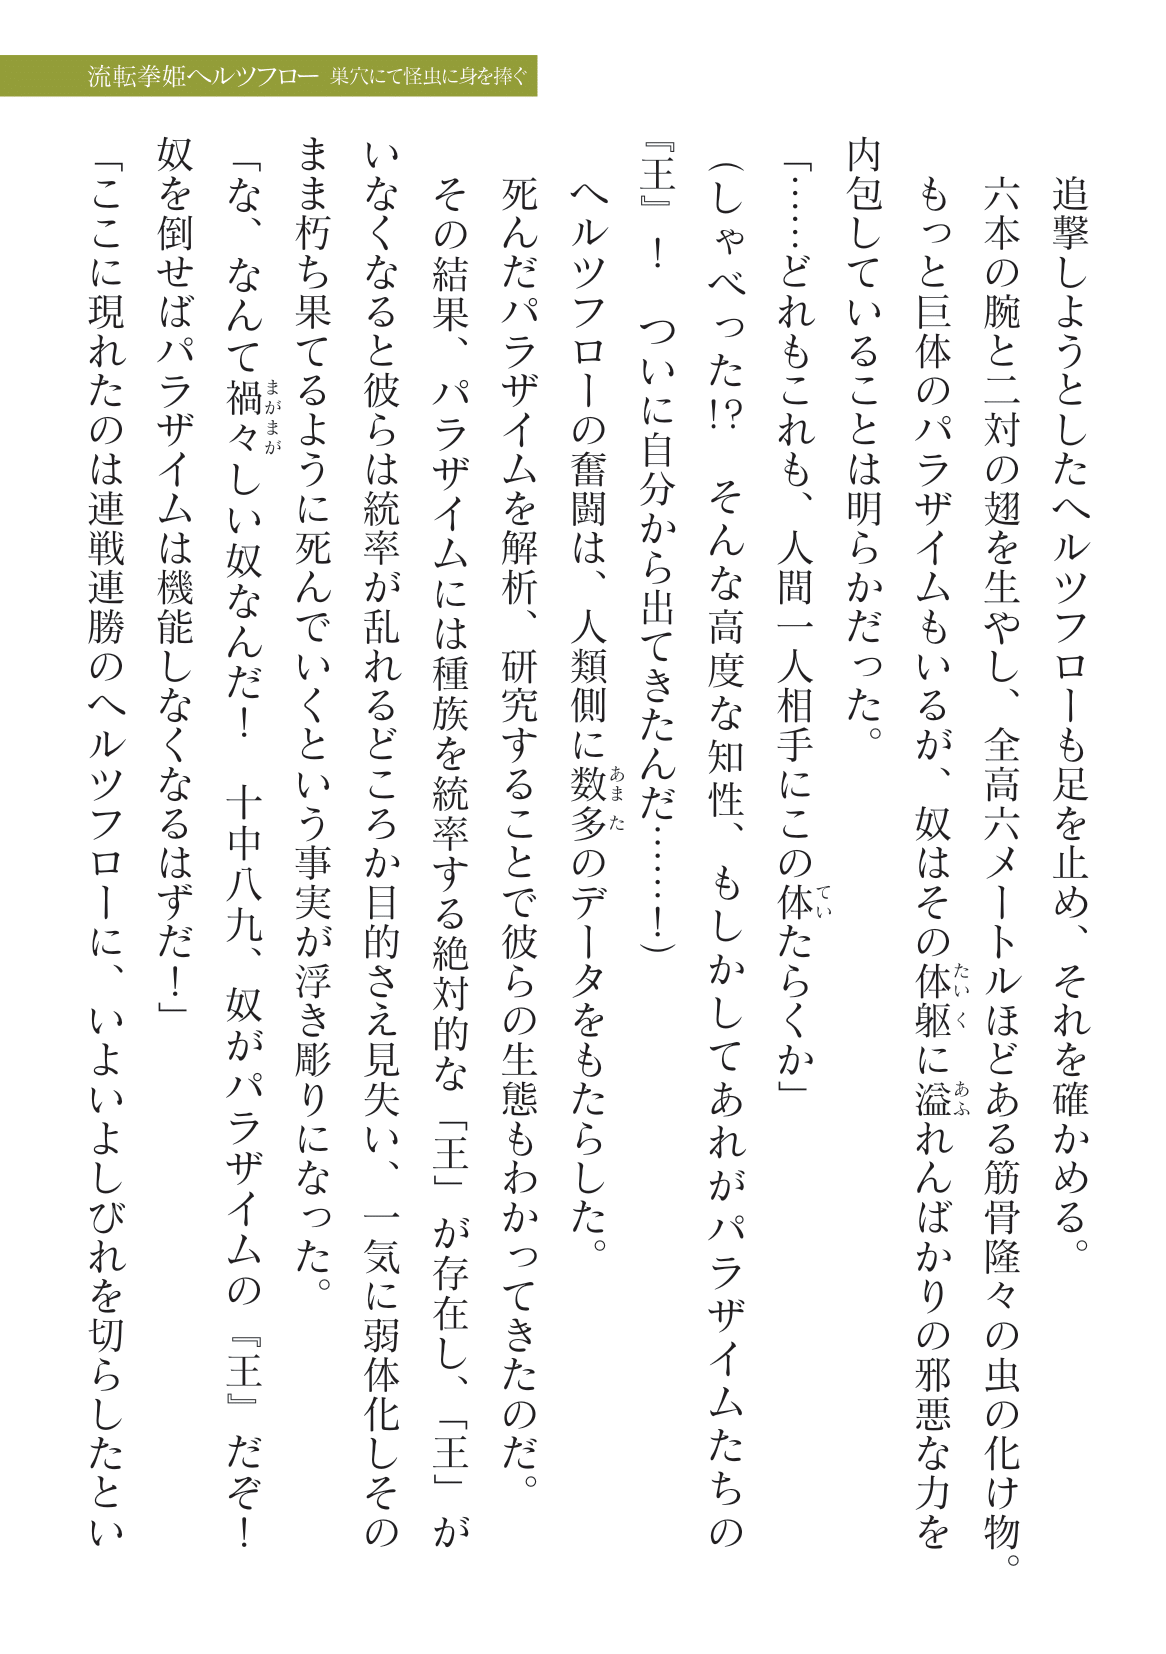 流転拳姫ヘルツフロー 巣穴にて怪虫に身を捧ぐ
追撃しようとしたヘルツフローも足を止め、それを確かめる。
六本の腕と二対の翅を生やし、全高六メートルほどある筋骨隆々の虫の化け物。
もっと巨体のパラザイムもいるが、奴はその体躯に溢れんばかりの邪悪な力を
内包していることは明らかだった。
「……どれもこれも、人間一人相手にこの体たらくか」
（しゃべった!?　そんな高度な知性、もしかしてあれがパラザイムたちの
『王』！　ついに自分から出てきたんだ……！）
ヘルツフローの奮闘は、人類側に数多のデータをもたらした。
死んだパラザイムを解析、研究することで彼らの生態もわかってきたのだ。
その結果、パラザイムには種族を統率する絶対的な「王」が存在し、「王」が
いなくなると彼らは統率が乱れるどころか目的さえ見失い、一気に弱体化しその
まま朽ち果てるように死んでいくという事実が浮き彫りになった。
「な、なんて禍々しい奴なんだ！　十中八九、奴がパラザイムの『王』だぞ！
奴を倒せばパラザイムは機能しなくなるはずだ！」
「ここに現れたのは連戦連勝のヘルツフローに、いよいよしびれを切らしたとい